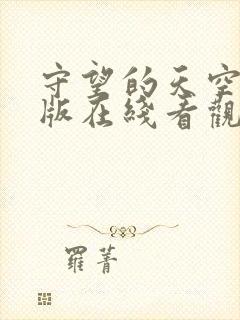 守望的天空
版在綫看觀
羅菁